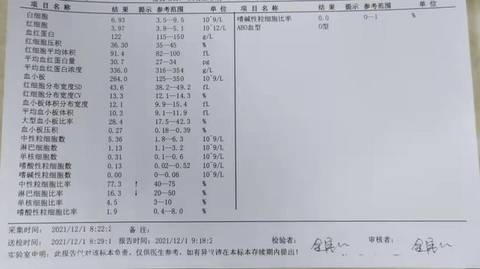 结果 提示 参考范围 单位 项目 结果 提示 参考范围 单位
白细胞 6.93 3.5--9.5 10^9/L 嗜碱性粒细胞比率 0.0 0--1 %
红细胞 3.97 3.8--5.1 10^12/L ABO血型 O型
血红蛋白 122 115--150 g/L
红细胞压积 36.30 35--45 %
红细胞平均体积 91.4 82--100 fL
平均血红蛋白量 30.7 27--34 pg
平均血红蛋白浓度 336.0 316--354 g/L
血小板 264.0 125--350 10^9/L
红细胞分布宽度SD 43.6 38.2--49.2 fL
红细胞分布宽度CV 13.3 12.1--14.3 %
血小板体积分布宽度 12.1 9.9--15.4 fL
平均血小板体积 10.2 9.1--11.9 fL
大型血小板比率 28.4 17.5--42.3 %
血小板压积 0.27 0.18--0.39 %
中性粒细胞数 5.36 1.8--6.3 10^9/L
淋巴细胞数 1.13 1.1--3.2 10^9/L
单核细胞数 0.31 0.1--0.6 10^9/L
嗜酸性粒细胞数 0.13 0.02--0.52 10^9/L
嗜碱性粒细胞数 0.00 0--0.06 10^9/L
中性粒细胞比率 77.3 ↑ 40--75 %
淋巴细胞比率 16.3 ↓ 20--50 %
单核细胞比率 4.5 3--10 %
嗜酸性粒细胞比率 1.9 0.4--8.0 %
采集时间: 2021/12/1 8:22:2 备注:
送检时间: 2021/12/1 8:29:1 报告时间: 2021/12/1 9:18:2 检验者: 审核者:
实验室申明: 此报告仅对该标本负责, 仅供医生参考, 如有异议请在本标本存续期内提出!